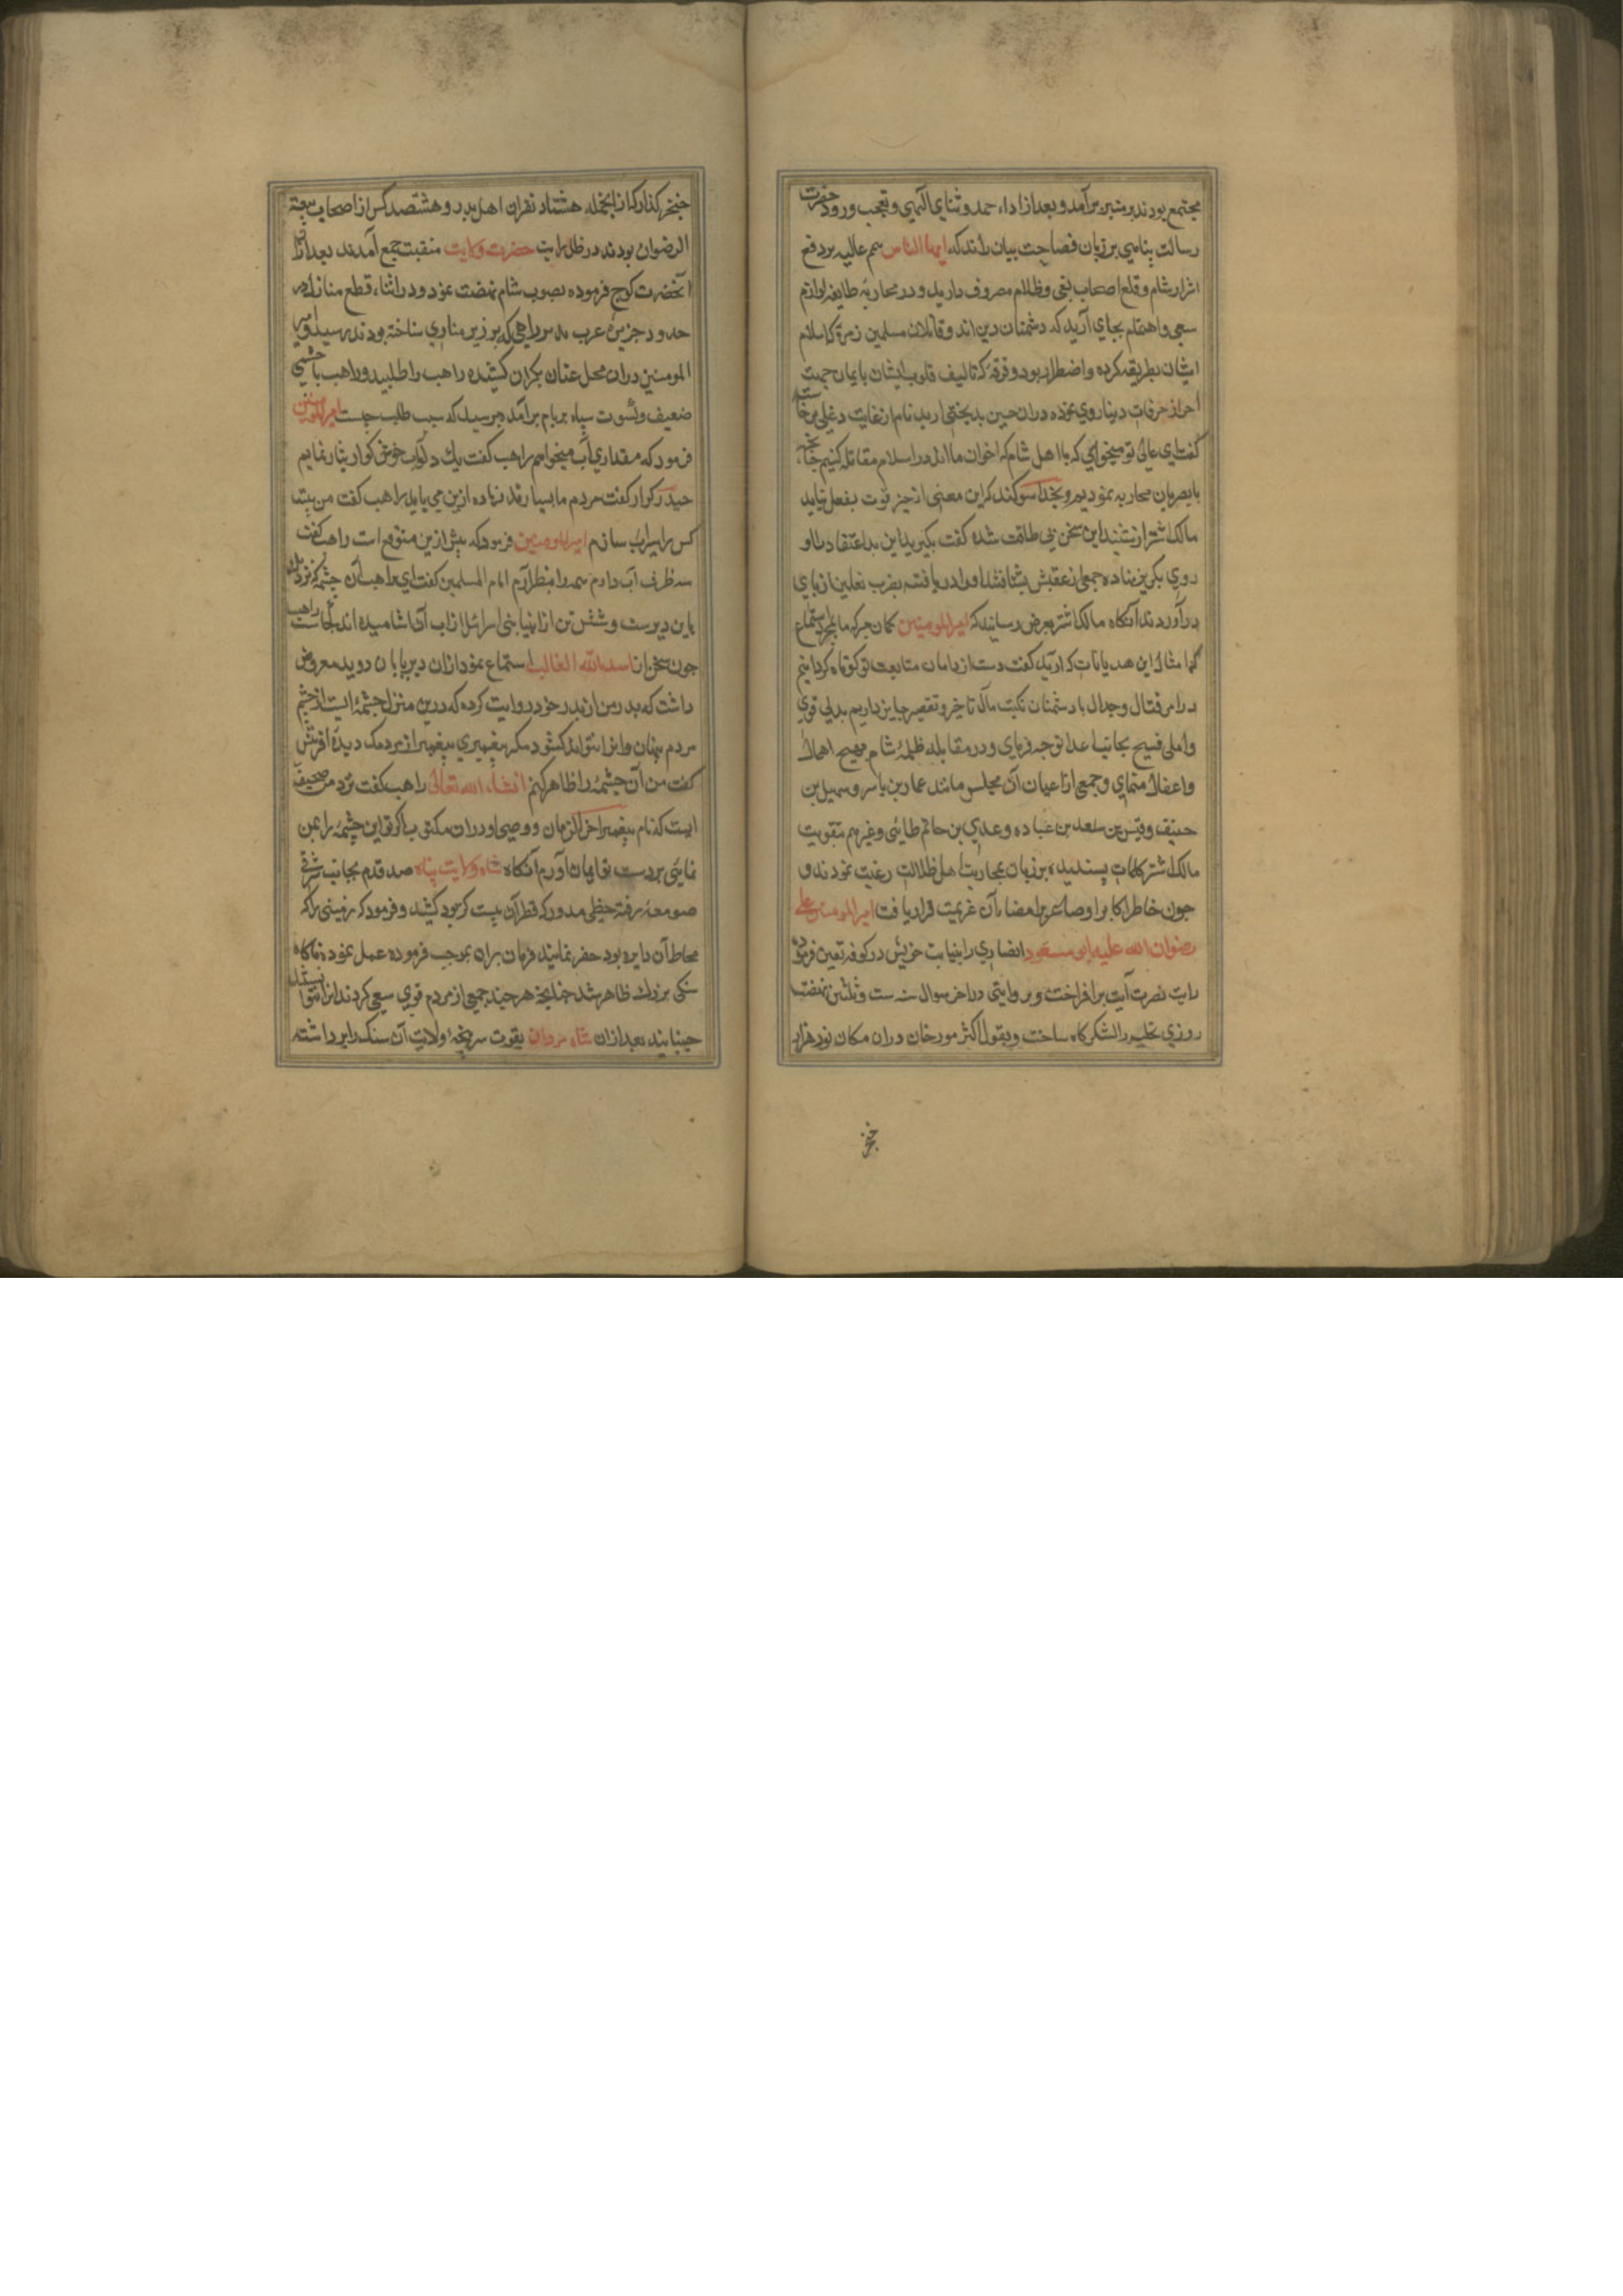 مجتمع بودند بر منبر برآمد و بعد از اداء حمد و ثنای الهی و درود حضرت
رسالت پناهی بر زبان فصاحت بیان راند که ایها الناس همم عالیه بر دفع
اشرار شام و قلع اصحاب بغی و ظلام مصروف دارید و در محاربه طایفه لوازم
سعی و اهتمام بجای آرید که دشمنان دین اند و قاتلان مسلمین زمرهٔ کاسلام
ایشان بطریقه کره و اضطرار بود و فرقهٔ که تالیف قلوب ایشان بایمان جهت
احراز دینار روی نموده دران حین بدبختی اربد نام از غایت دغلی برخاسته
گفت ای علی تو میخواهی که با اهل شام که اخوان ما اند در اسلام مقاتله کنیم چنانچه
با بصریان محاربه نمودیم و بخدا سوگند که این معنی از حیز قوت بفعل نیاید
مالک اشتر از شنیدن این سخن بی طاقت شده گفت بگیرید این بد اعتقاد را و او
روی بگریز نهاده جمعی از عقبش بشتافتند و او را دریافته بضرب نعلین از پای
درآوردند آنگاه مالک اشتر بعرض رسانید که امیرالمومنین گمان مبر که ما بمجرد استماع
امثال این هذیانات که اربد گفت دست از دامان متابعت تو کوتاه گردانیم
در امر قتال و جدال با دشمنان نکبت مآل تاخیر و تقصیر جایز داریم بدلی قوی
و املی فسیح بجانب اعدا توجه فرمای و در مقابله ظلمهٔ شام هیچ اهمال
و اغفال منمای و جمعی از اعیان آن مجلس مانند عمار بن یاسر و سهیل بن
حنیف و قیس بن سعد بن عباده و عدی بن حاتم طائی و غیرهم بتقویت
مالک اشتر کلمات پسندیده بر زبان بمحاربت اهل ظلالت رغبت نمودند و
چون خاطر اکابر اوصاغر بر امضاء آن عزیمت قرار یافت امیرالمومنین علی
رضوان الله علیه ابو مسعود انصاری را بنیابت خویش در کوفه تعین فرموده
رایت نصرت آیت برافراخت و بروایتی در اخر سوال سنه ست و ثلثین نهضت
روزی نخیله را لشکرگاه ساخت و بقول اکثر مورخان دران مکان نود هزار
خنجر
خنجر گذار که از انجمله هشتاد نفر از اهل بدر و هشتصد کس از اصحاب بیعة
الرضوان بودند در ظل رایت حضرت ولایت منقبت جمع آمدند بعد ازان
آنحضرت کوچ فرموده بصوب شام نهضت نمود و در اثناء قطع منازل در
حدود جزیرهٔ عرب بدیر راهبی که بر زیر مناری ساخته بودند رسید و امیر
المومنین دران محل عنان یکران کشیده راهب را طلبید و راهب با جثهٔ
ضعیف و کسوت سیاه بر بام برآمد و پرسید که سبب طلب چیست امیرالمومنین
فرمود که مقداری آب میخواهم راهب گفت یک دلو آب خوش گوار بیار نمایم
حیدر کرار گفت مردم ما بسیارند زیاده ازین می باید راهب گفت من بیست
کس را سیراب سازم امیرالمومنین فرمود که بیش ازین متوقع است راهب گفت
سه ظرف آب دارم همه را بنظر آرم امام المسلمین گفت ای راهب آن چشمه که نزدیک
باین دیرست و شش تن از انبیا بنی اسرائل ازان آب آشامیده اند کجاست راهب
چون سخن از اسدالله الغالب استماع نمود ازان دیر پایان دوید معروض
داشت که پدر من از پدر خود روایت کرده که درین منزل چشمهٔ ایست از چشم
مردم پنهان و انرا نتواند گشود مگر پیغمبری یا پیغمبر از مردمک دیدهٔ آفرینش
گفت من آن چشمه را ظاهر کنم انشاء الله تعالی راهب گفت نزد من صحیفهٔ
ایست که نام پیغمبر اخرالزمان و وصی او دران مکتوب اگر تو این چشمه را بمن
نمایی بر دست تو ایمان آورم آنگاه شاه ولایت پناه صد قدم بجانب شرقی
صومعه رفته خطی مدور که قطر آن بیست گز بود کشید و فرمود که زمینی را که
محاط آن دایره بود حفر نمایند فرمان بران بموجب فرموده عمل نموده ناگاه
سنگی بزرگ ظاهر شد چنانچه هر چند جمعی از مردم قوی سعی کردند انرا نتوانستند
جنبانید بعد ازان شاه مردان بقوت سرپنجهٔ ولایت آن سنگ را برداشته